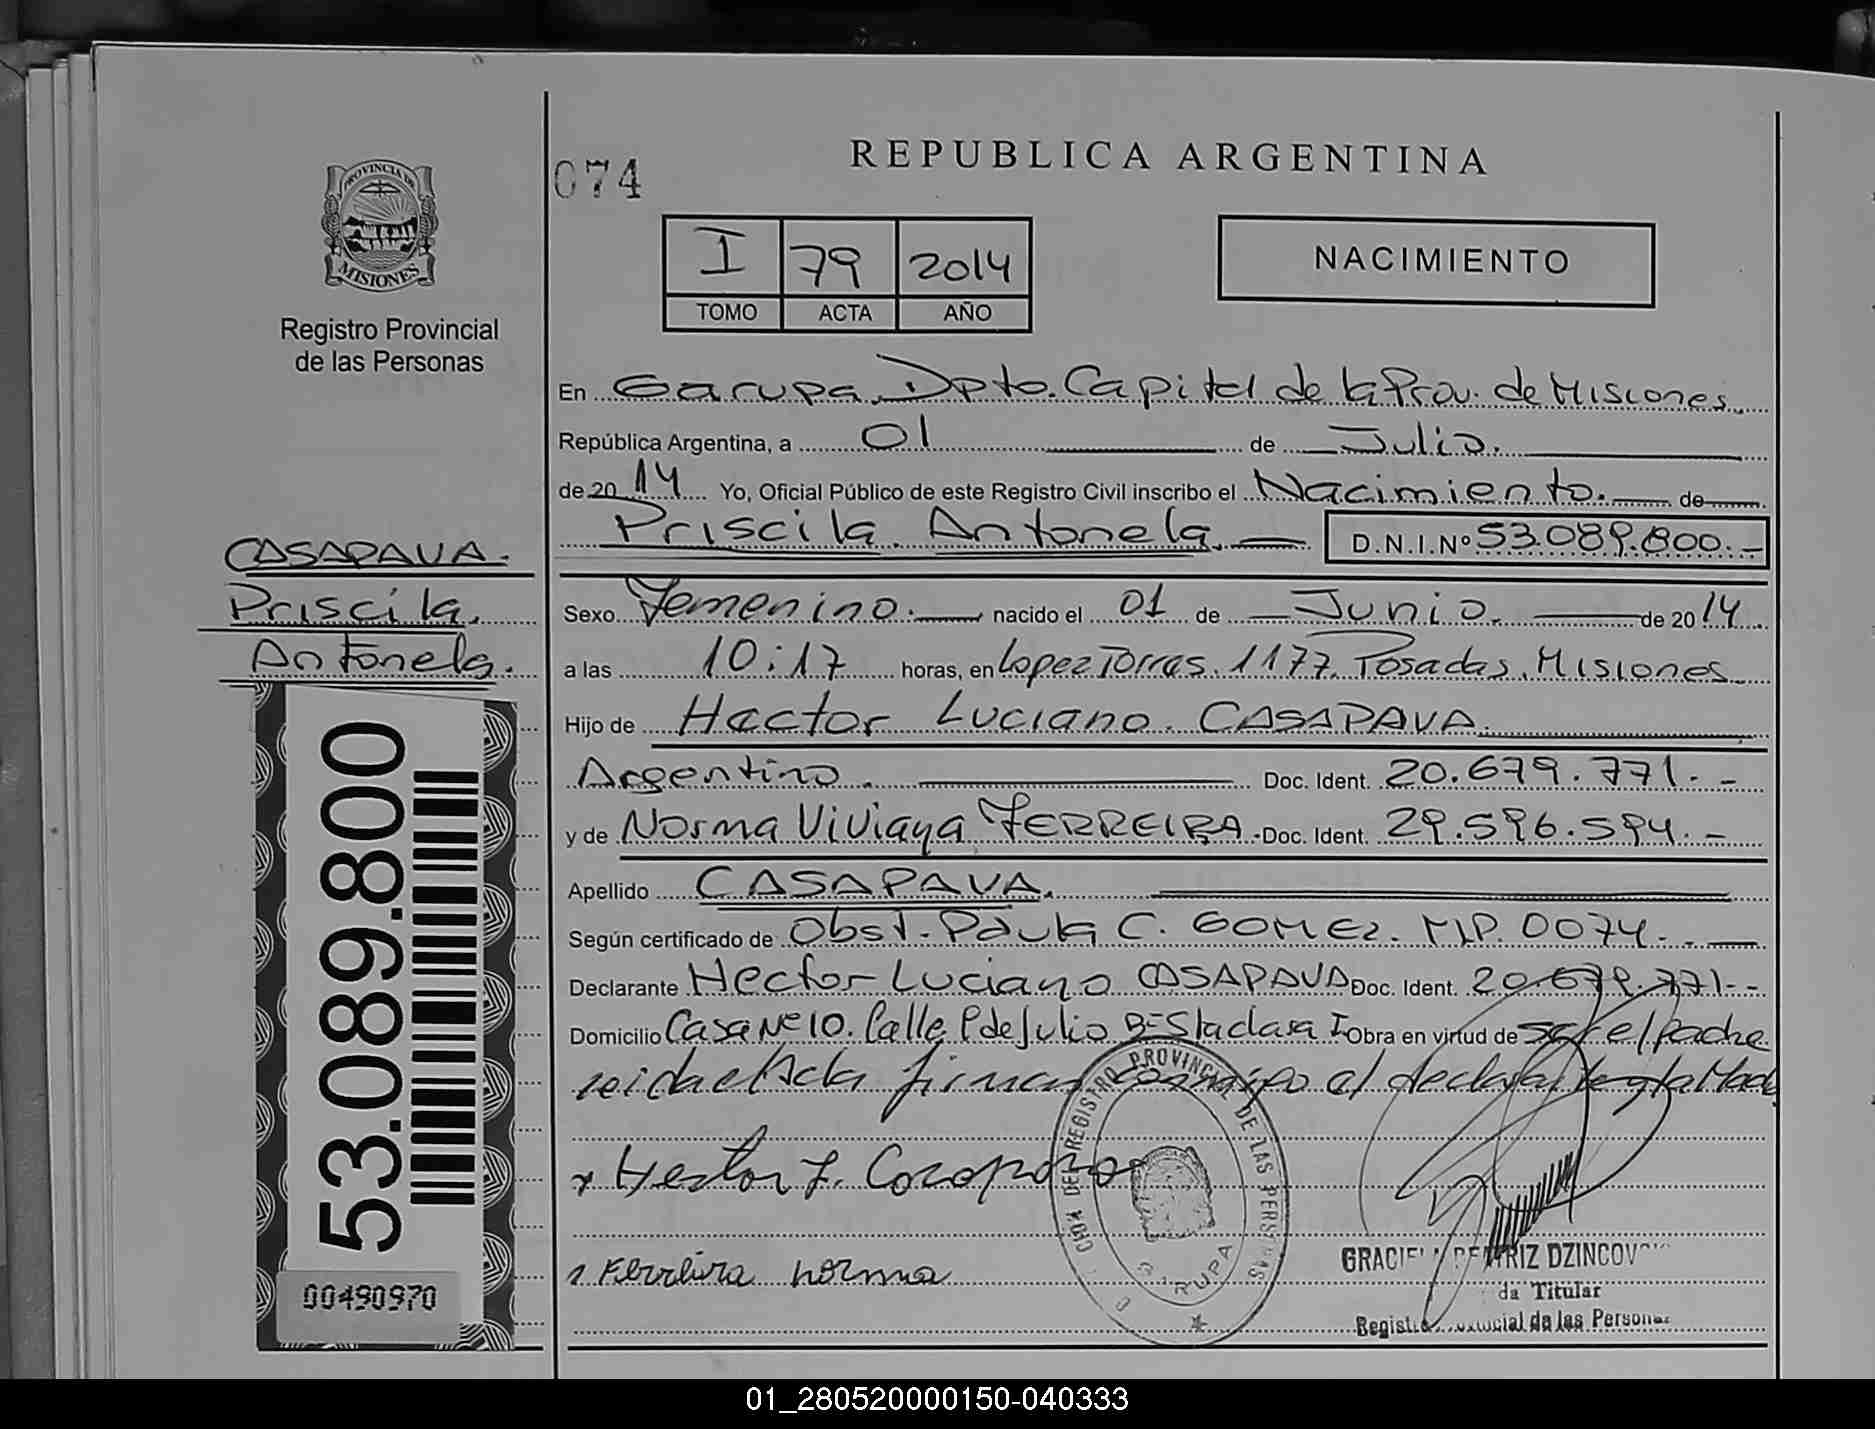 REPUBLICA ARGENTINA
074
PROVINCIA DE
MISIONES
Registro Provincial
de las Personas
I 79 2014
TOMO ACTA AÑO
NACIMIENTO
En Garupa, Dpto. Capital de la Prov. de Misiones
República Argentina, a 01 de Julio.
de 2014 Yo, Oficial Público de este Registro Civil inscribo el Nacimiento. de
Priscila Antonela. D.N.I.Nº 53.089.800.-
CASAPAVA.
Priscila.
Antonela.
Sexo Femenino. nacido el 01 de Junio. de 2014.
a las 10:17 horas, en Lopez Torres. 1177. Posadas. Misiones
Hijo de Hector Luciano. CASAPAVA.
Argentino. Doc. Ident. 20.679.771.-
y de Norma Viviana FERREIRA.- Doc. Ident. 29.596.594.-
Apellido CASAPAVA.
Según certificado de Obst. Paula C. GOMEZ. M.P. 0074.
Declarante Hector Luciano CASAPAVA Doc. Ident. 20.679.771.-
Domicilio Casa Nº 10. Calle 9 de Julio Bº Sta clara I Obra en virtud de ser el padre
firman conmigo el declarante y la Madre
Hector L. Casapava
Ferreira norma
DEL REGISTRO PROVINCIAL DE LAS PERSONAS
GARUPA
GRACIELA BEATRIZ
Titular
de las Personas
53.089.800
00490970
01_280520000150-040333